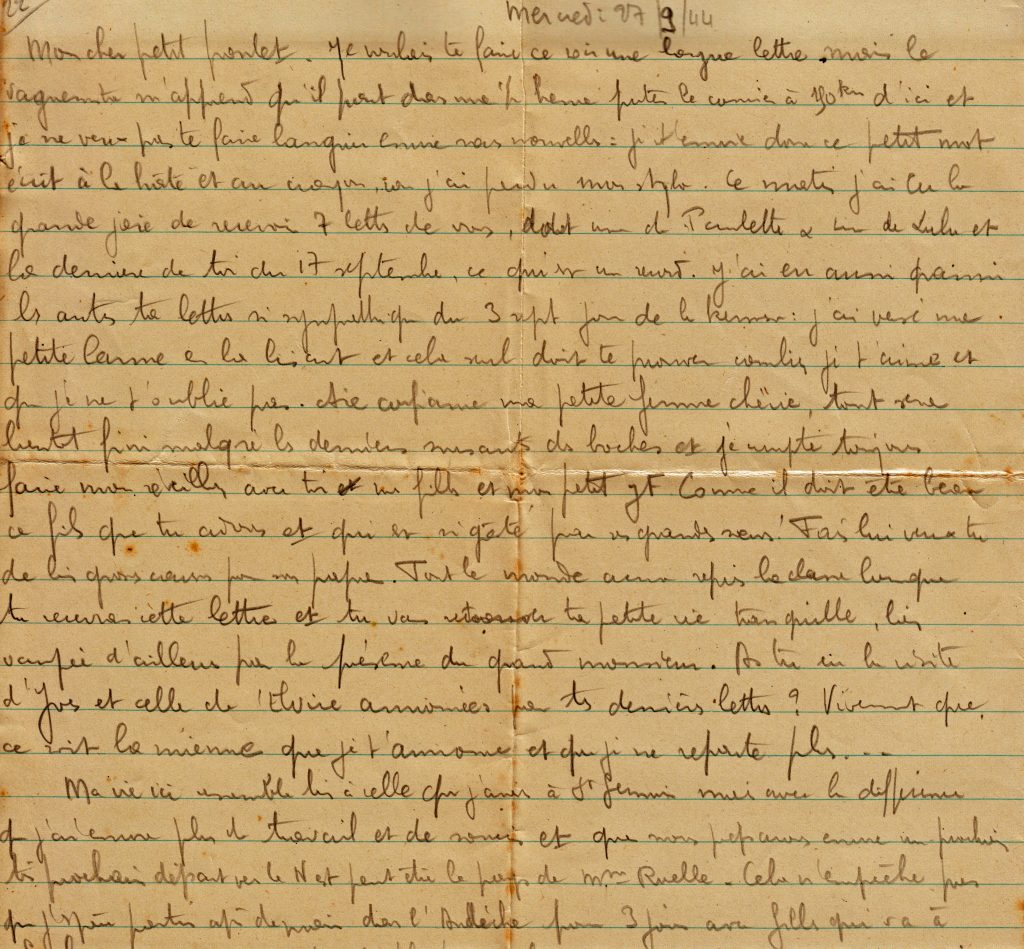 22
Mercredi 27/9/44
Mon cher petit poulet. Je voulais te faire ce soir une longue lettre mais le
vaguemestre m'apprend qu'il part dans une ½ heure porter le courrier à 150 km d'ici et
je ne veux pas te faire languir encore sans nouvelles : je t'envoie donc ce petit mot
écrit à la hâte et au crayon, car j'ai perdu mon stylo. Ce matin j'ai eu la
grande joie de recevoir 7 lettres de vous, dont une de Paulette & une de Lulu et
la dernière de toi du 17 septembre, ce qui est un record. J'ai eu aussi parmi
les autres ta lettre si sympathique du 3 sept jour de la : j'ai versé une
petite larme en la lisant et cela seul doit te prouver combien je t'aime et
que je ne t'oublie pas. Aie confiance ma petite femme chérie, tout sera
bientôt fini malgré les derniers sursauts des boches et je compte toujours
faire mon réveillon avec toi et mes filles et mon petit gt Comme il doit être beau
ce fils que tu adores et qui est si gâté par ses grandes sœurs ! Fais lui veux tu
de bien gros par son papa. Tout le monde aura repris la classe lorsque
tu recevras cette lettre et tu vas retrouver ta petite vie tranquille, bien
d'ailleurs par la présence du grand monsieur. As tu eu la visite
d'Yves et celle de l'Elvire annoncées par tes dernières lettres ? Vivement que
ce soit la mienne que je t'annonce et que je ne reparte plus...
Ma vie ici ressemble bien à celle que j'avais à St Germain mais avec la différence
que j'ai encore plus de travail et de soucis et que nous préparons encore un prochain
très prochain départ vers le N est peut être le pays de Mme Ruelle. Cela n'empêche pas
que j'espère partir après demain dans l'Ardèche pour 3 jours avec qui va à